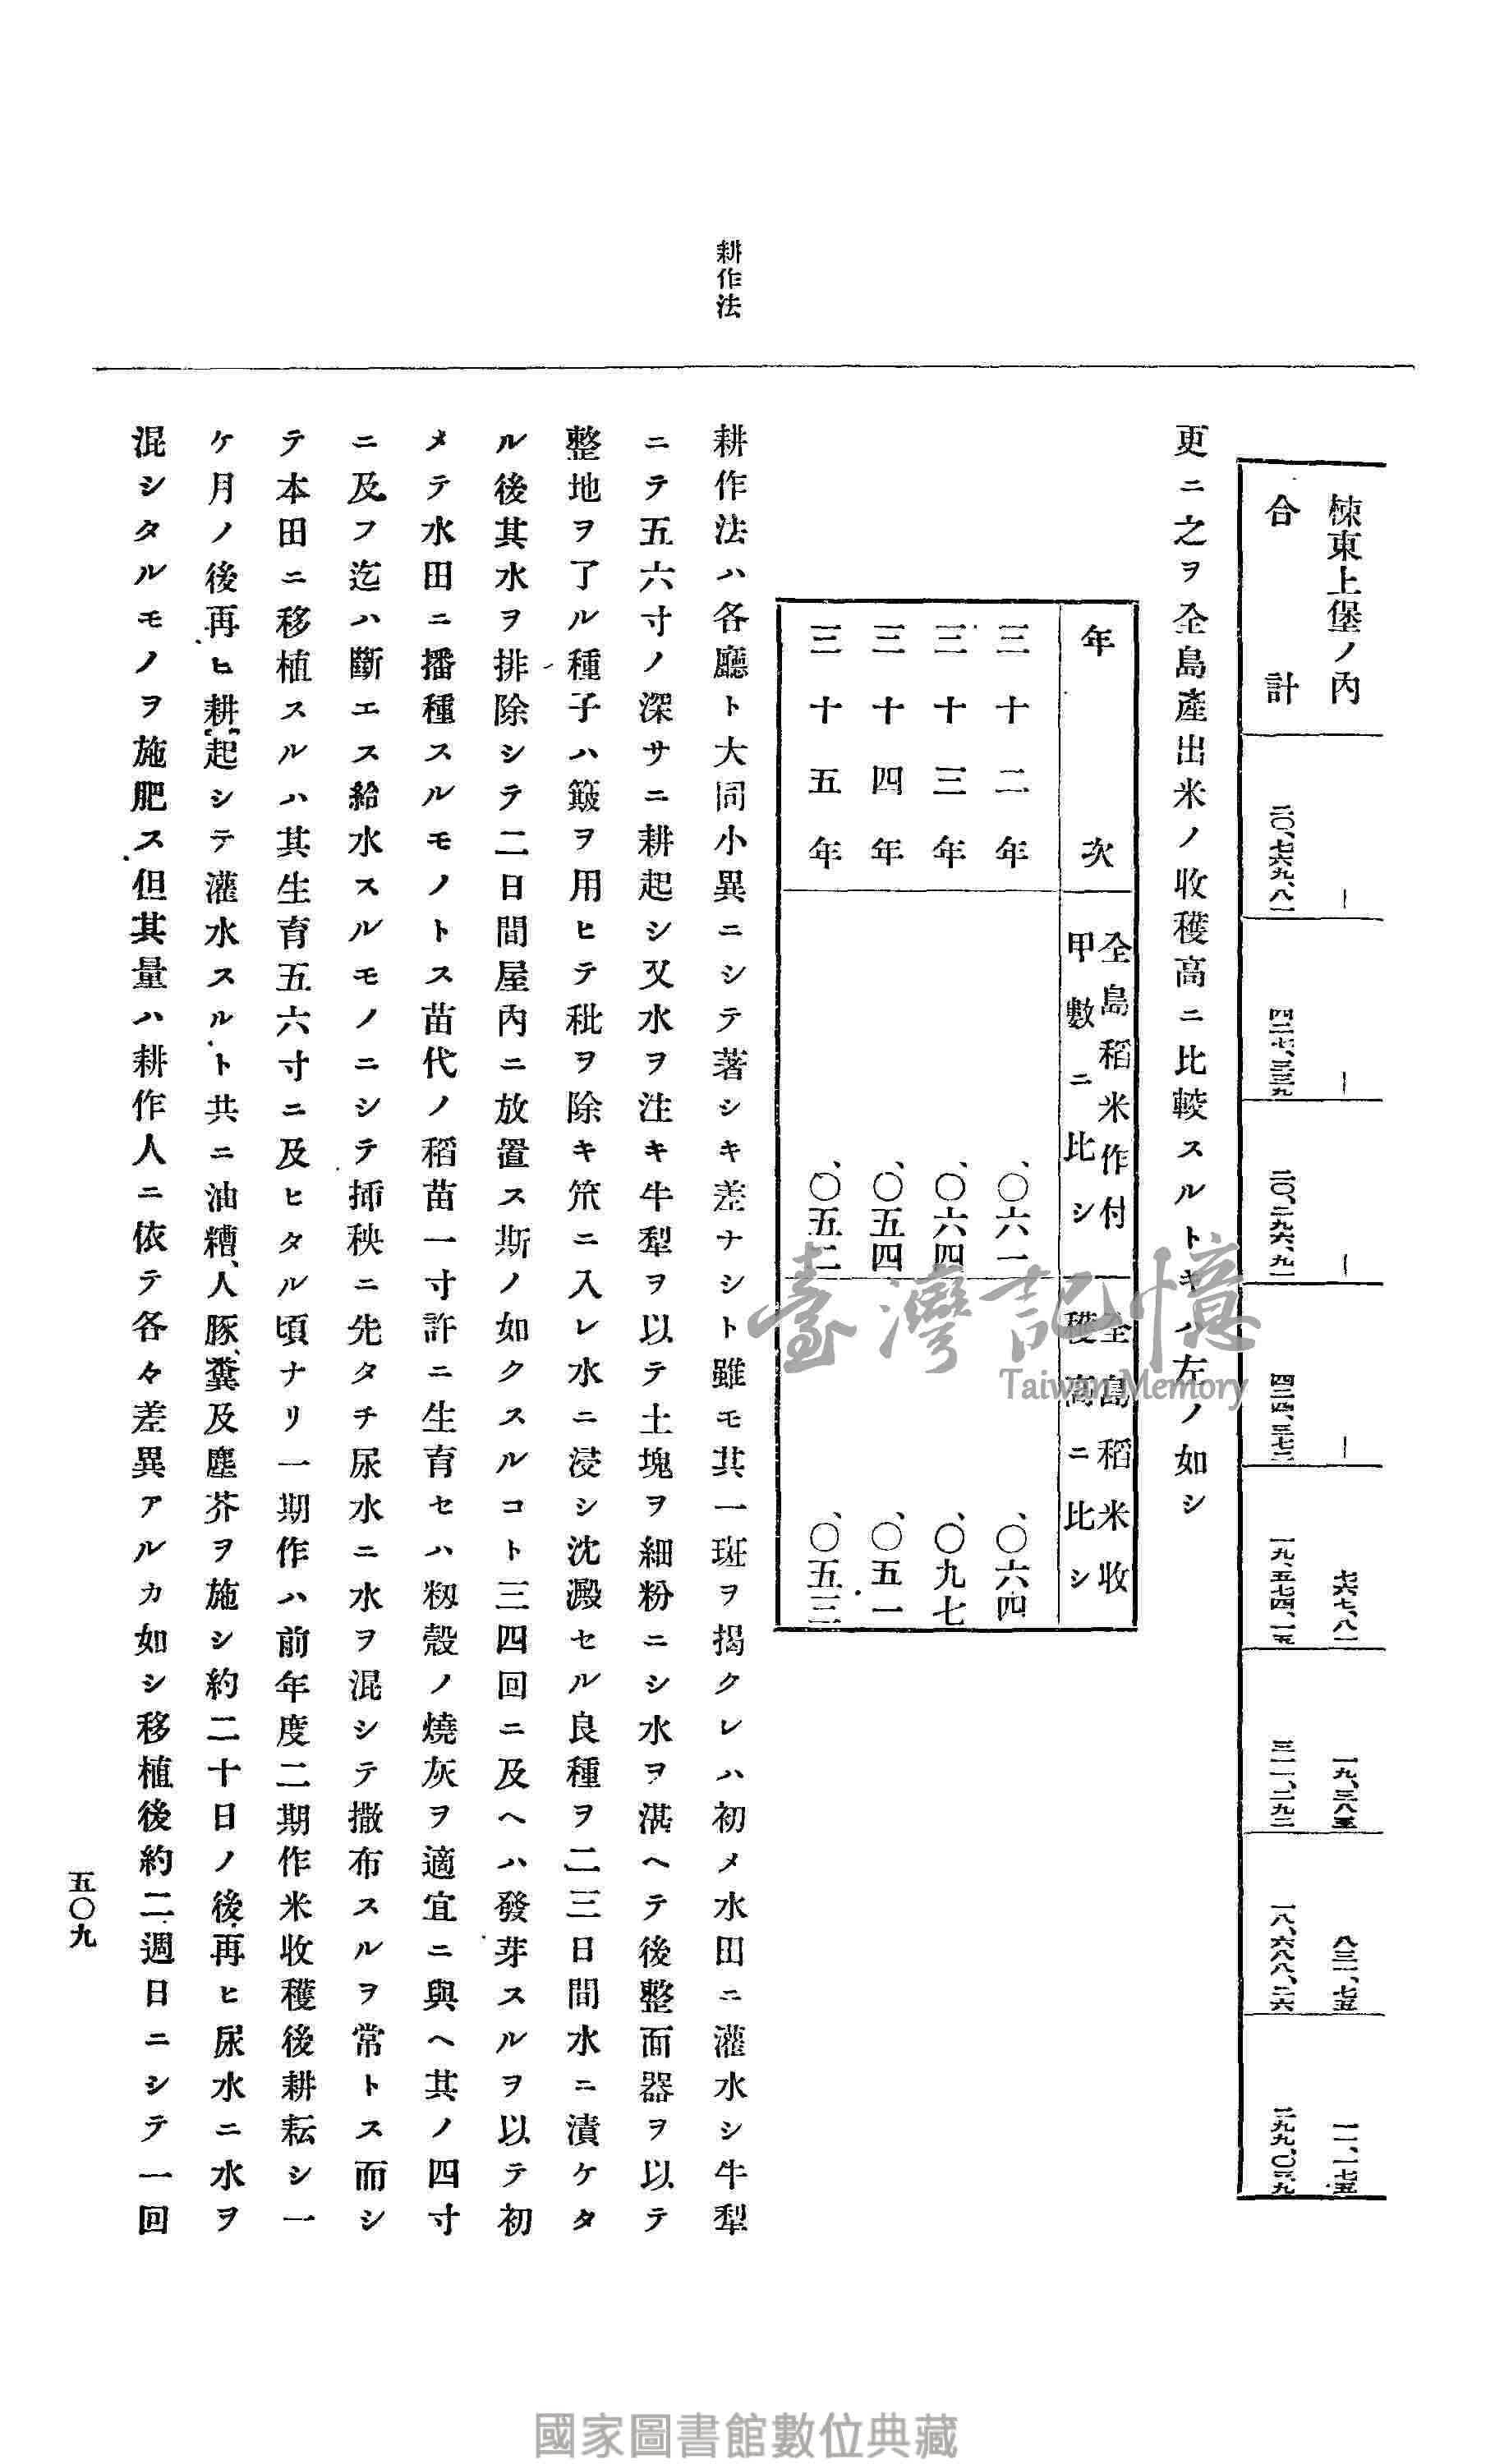 耕作法
棟東上堡ノ內 ― ― ― ― 七六七、八一 一九、三八五 八三一、七五 一一、一七五
合計 二〇、七六九、八一 四二七、三三九 二〇、二九六、九一 四二四、三七二 一九、五七四、一五 三一一、二九三 一八、六八八、二六 二九九、〇三九
更ニ之ヲ全島產出米ノ收穫高ニ比較スルトキハ左ノ如シ
年次 全島稻米作付甲數ニ比シ 全島稻米收穫高ニ比シ
三十二年 、〇六一 、〇六四
三十三年 、〇六四 、〇九七
三十四年 、〇五四 、〇五一
三十五年 、〇五二 、〇五三
耕作法ハ各廳ト大同小異ニシテ著シキ差ナシト雖モ其一斑ヲ揭クレハ初メ水田ニ灌水シ牛犁
ニテ五六寸ノ深サニ耕起シ又水ヲ注キ牛犁ヲ以テ土塊ヲ細粉ニシ水ヲ湛ヘテ後整面器ヲ以テ
整地ヲ了ル種子ハ簸ヲ用ヒテ秕ヲ除キ笊ニ入レ水ニ浸シ沈澱セル良種ヲ二三日間水ニ漬ケタ
ル後其水ヲ排除シテ二日間屋內ニ放置ス斯ノ如クスルコト三四回ニ及ヘハ發芽スルヲ以テ初
メテ水田ニ播種スルモノトス苗代ノ稻苗一寸許ニ生育セハ籾殼ノ燒灰ヲ適宜ニ與ヘ其ノ四寸
ニ及フ迄ハ斷エス給水スルモノニシテ揷秧ニ先タチ尿水ニ水ヲ混シテ撒布スルヲ常トス而シ
テ本田ニ移植スルハ其生育五六寸ニ及ヒタル頃ナリ一期作ハ前年度二期作米收穫後耕耘シ一
ケ月ノ後再ヒ耕起シテ灌水スルト共ニ油糟、人豚、糞及塵芥ヲ施シ約二十日ノ後再ヒ尿水ニ水ヲ
混シタルモノヲ施肥ス但其量ハ耕作人ニ依テ各々差異アルカ如シ移植後約二週日ニシテ一回
五〇九
臺灣記憶
Taiwan Memory
國家圖書館數位典藏